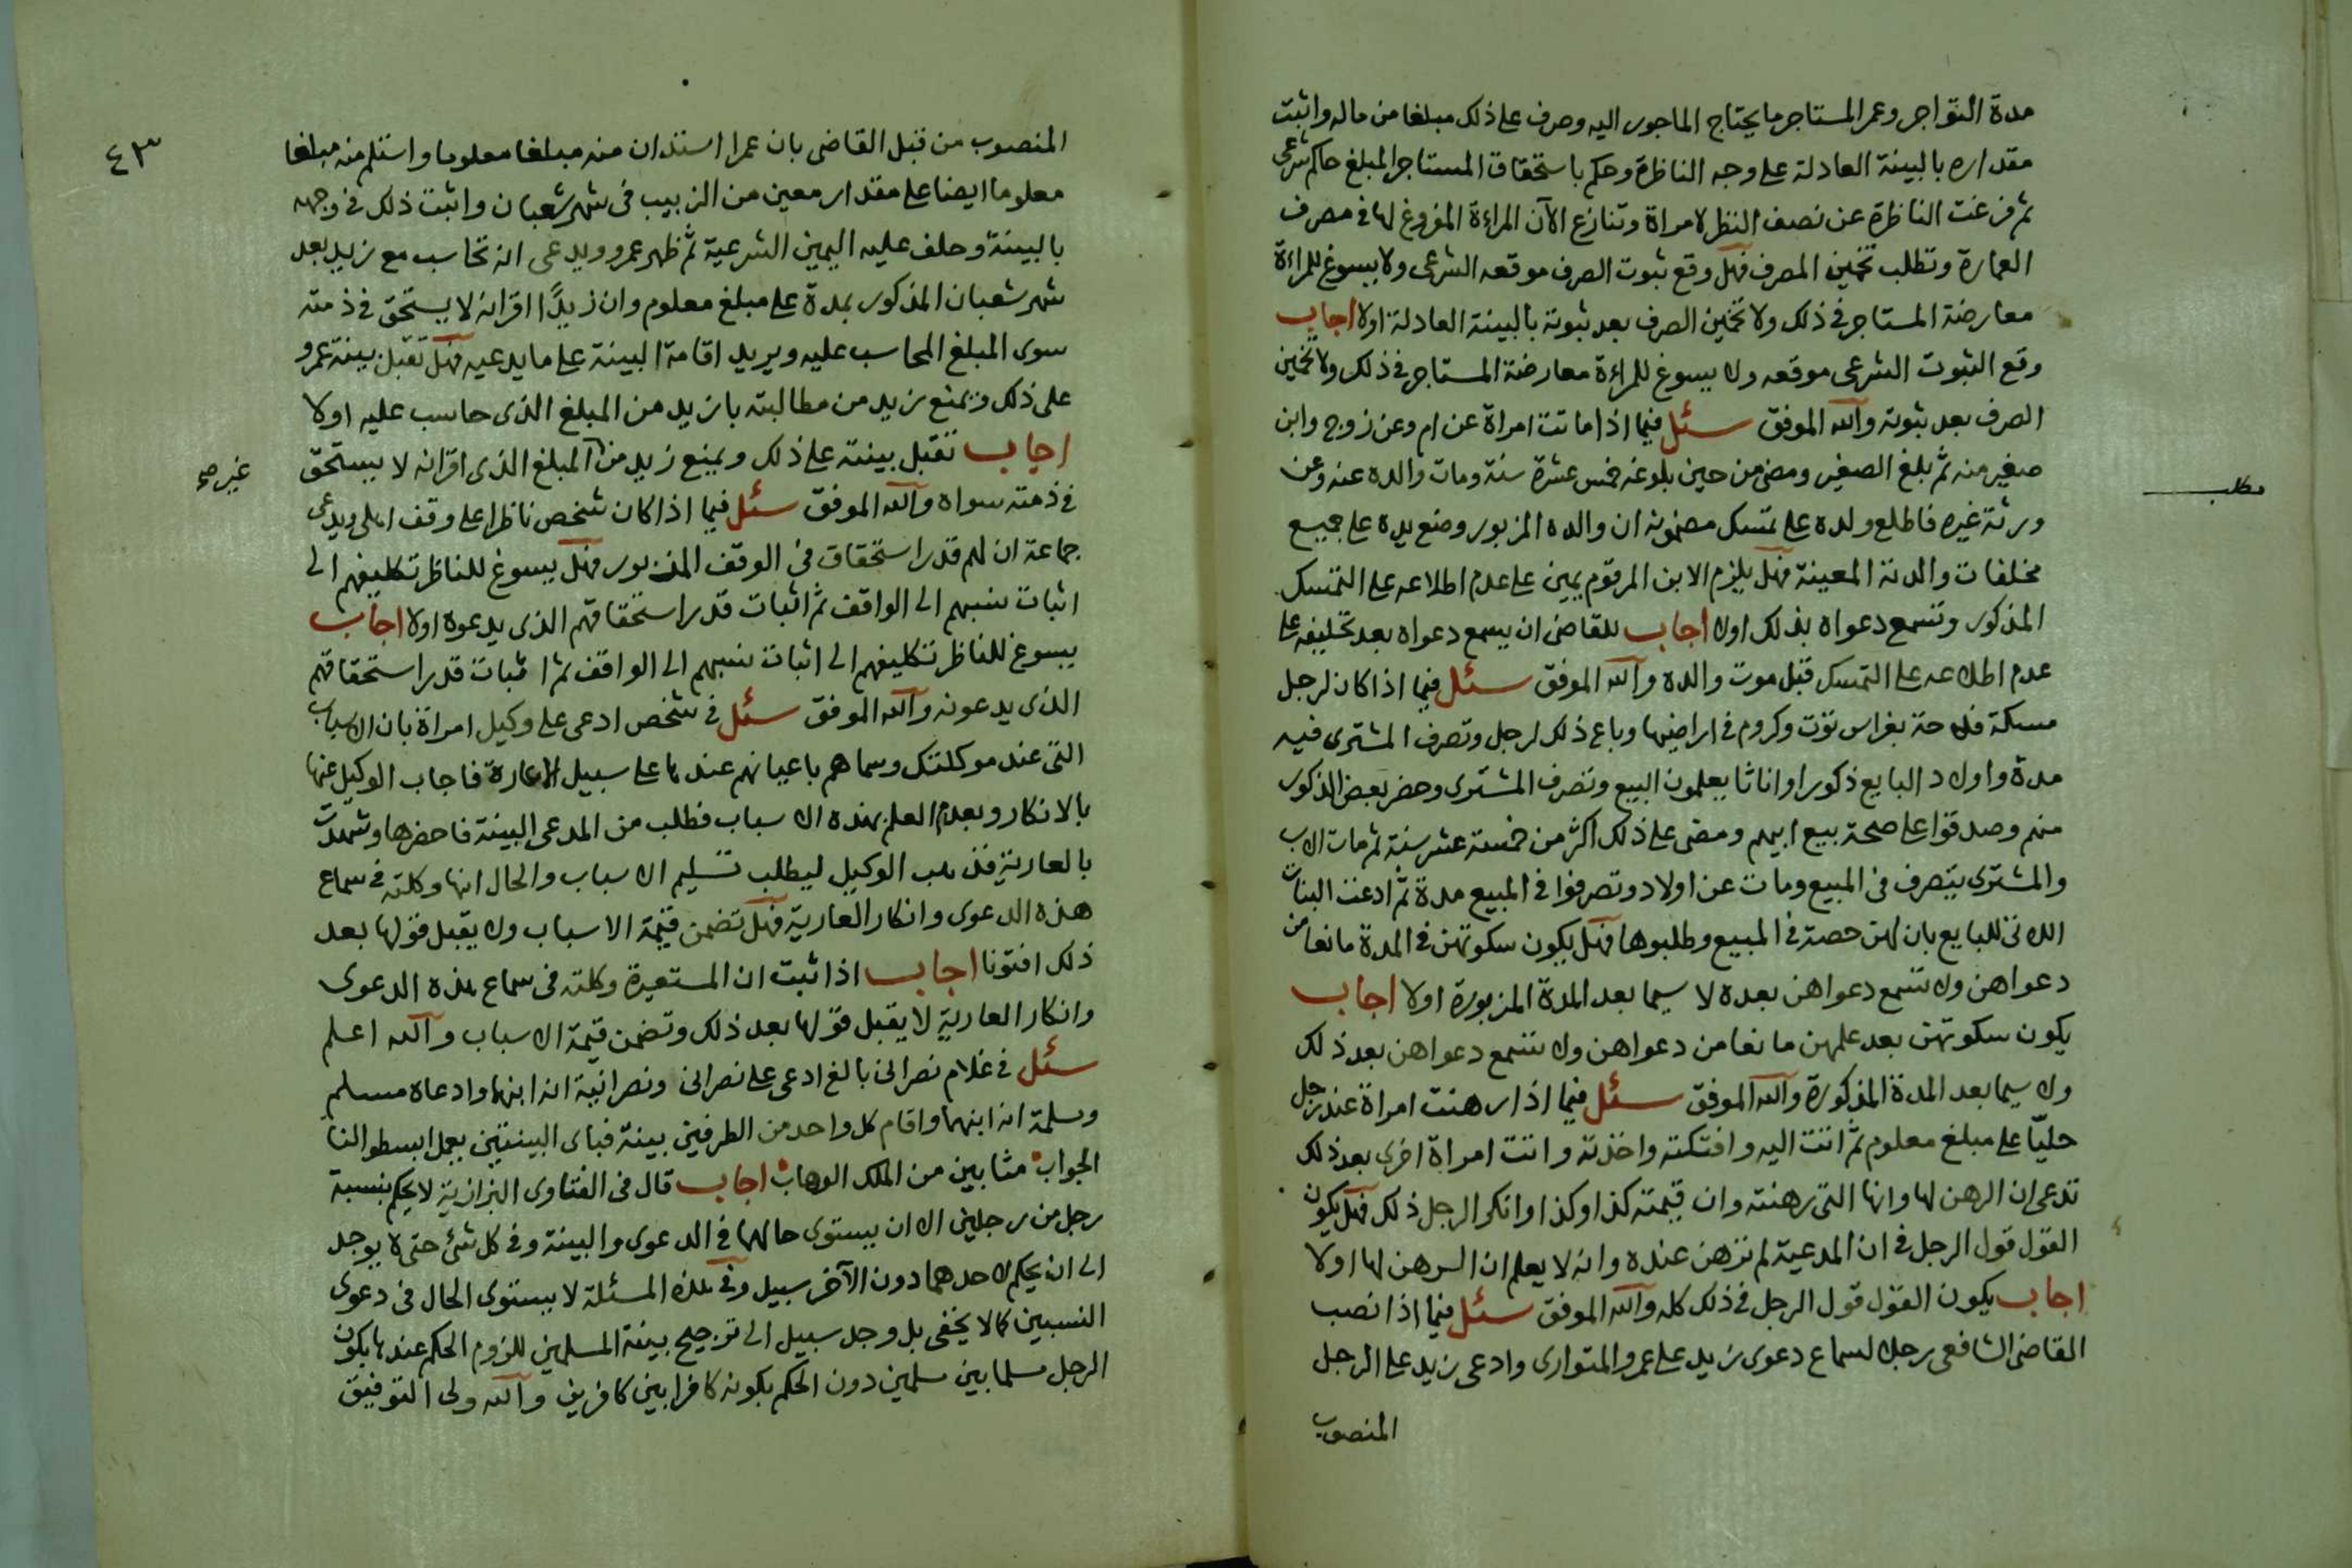 مدة التواجر وعمر المستاجر ما يحتاج الماجور اليه وصرف على ذلك مبلغا من ماله واثبت
مقداره بالبينة العادلة على وجه الناظرة وحكم باستحقاق المستاجر المبلغ حاكم شرعى
ثم فرغت الناظرة عن نصف النظر لامراة وتنازع الآن المراءة المفروغ لها فى مصرف
العمارة وتطلب تخمين المصرف فهل وقع ثبوت الصرف موقعه الشرعى ولا يسوغ للمراءة
معارضة المستاجر فى ذلك ولا تخمين الصرف بعد ثبوته بالبينة العادلة اولا اجاب
وقع الثبوت الشرعى موقعه ولا يسوغ للمراءة معارضة المستاجر فى ذلك ولا تخمين
الصرف بعد ثبوته والله الموفق سئل فيما اذا ماتت امراة عن ام وعن زوج وابن
صغير منه ثم بلغ الصغير ومضى من حين بلوغه خمس عشرة سنة ومات والده عنه وعن
مطلب
ورثة غيره فاطلع ولده على تمسك مضمونه ان والده المزبور وضع يده على جميع
مخلفات والدته المعينة فهل يلزم الابن المرقوم يمين على عدم اطلاعه على التمسك
المذكور وتسمع دعواه بذلك اولا اجاب للقاضى ان يسمع دعواه بعد تحليفه على
عدم اطلاعه على التمسك قبل موت والده والله الموفق سئل فيما اذا كان لرجل
مسكة فلاحة بغراس توت وكروم فى اراضيها وباع ذلك لرجل وتصرف المشترى فيه
مدة واولاد البايع ذكورا واناثا يعلمون البيع وتصرف المشترى وحضر بعض الذكور
منهم وصدقوا على صحة بيع ابيهم ومضى على ذلك اكثر من خمسة عشر سنة ثم مات الاب
والمشترى يتصرف فى المبيع ومات عن اولاد وتصرفوا فى المبيع مدة ثم ادعت البنات
اللاتى للبايع بان لهن حصة فى المبيع وطلبوها فهل يكون سكوتهن فى المدة مانعا من
دعواهن ولا تسمع دعواهن بعده لا سيما بعد المدة المزبورة اولا اجاب
يكون سكوتهن بعد علمهن مانعا من دعواهن ولا تسمع دعواهن بعد ذلك
ولا سيما بعد المدة المذكورة والله الموفق سئل فيما اذا رهنت امراة عند رجل
حليا على مبلغ معلوم ثم اتت اليه وافتكته واخذته واتت امراة اخرى بعد ذلك
تدعى ان الرهن لها وانها التى رهنته وان قيمته كذا وكذا وانكر الرجل ذلك فهل يكون
القول قول الرجل فى ان المدعية لم ترهن عنده وانه لا يعلم ان الرهن لها اولا
اجاب يكون القول قول الرجل فى ذلك كله والله الموفق سئل فيما اذا نصب
القاضى الشافعى رجلا لسماع دعوى زيد على عمرو المتوارى وادعى زيد على الرجل
المنصوب
٤٣
المنصوب من قبل القاضى بان عمرا استدان منه مبلغا معلوما واستلم منه مبلغا
معلوما ايضا على مقدار معين من الزبيب فى شهر شعبان واثبت ذلك فى وجهه
بالبينة وحلف عليه اليمين الشرعية ثم ظهر عمرو ويدعى انه تحاسب مع زيد بعد
شهر شعبان المذكور بمدة على مبلغ معلوم وان زيدًا اقر انه لا يستحق فى ذمته
سوى المبلغ المحاسب عليه ويريد اقامة البينة على ما يدعيه فهل تقبل بينة عمرو
على ذلك ويمنع زيد من مطالبته بازيد من المبلغ الذى حاسب عليه اولا
اجاب تقبل بينته على ذلك ويمنع زيد من المبلغ الذى اقر انه لا يستحق
غير صح
فى ذمته سواه والله الموفق سئل فيما اذا كان شخص ناظرا على وقف اهلى ويدعى
جماعة ان لهم قدر استحقاق فى الوقف المزبور فهل يسوغ للناظر تكليفهم الى
اثبات نسبهم الى الواقف ثم اثبات قدر استحقاقهم الذى يدعوه اولا اجاب
يسوغ للناظر تكليفهم الى اثبات نسبهم الى الواقف ثم اثبات قدر استحقاقهم
الذى يدعونه والله الموفق سئل فى شخص ادعى على وكيل امراة بان الاسباب
التى عند موكلتك وسماهم باعيانهم عندها على سبيل الاعارة فاجاب الوكيل عنها
بالانكار وبعدم العلم بهذه الاسباب فطلب من المدعى البينة فاحضرها وشهدت
بالعارية فذهب الوكيل ليطلب تسليم الاسباب والحال انها وكلته فى سماع
هذه الدعوى وانكار العارية فهل تضمن قيمة الاسباب ولا يقبل قولها بعد
ذلك افتونا اجاب اذا ثبت ان المستعيرة وكلته فى سماع هذه الدعوى
وانكار العارية لا يقبل قولها بعد ذلك وتضمن قيمة الاسباب والله اعلم
سئل فى غلام نصرانى بالغ ادعى على نصرانى ونصرانية انه ابنهما وادعاه مسلم
ومسلمة انه ابنهما واقام كل واحد من الطرفين بينة فباى البينتين يعمل ابسطوا لنا
الجواب مثابين من الملك الوهاب اجاب قال فى الفتاوى البزازية لا يحكم بنسبة
رجل من رجلين الا ان يستوى حالهما فى الدعوى والبينة وفى كل شئ حتى لا يوجد
الى ان يحكم لاحدهما دون الآخر سبيل وفى هذه المسئلة لا يستوى الحال فى دعوى
النسبين كما لا يخفى بل وجد سبيل الى ترجيح بينة المسلمين للزوم الحكم عندها بكون
الرجل مسلما بين مسلمين دون الحكم بكونه كافرا بين كافرين والله ولى التوفيق